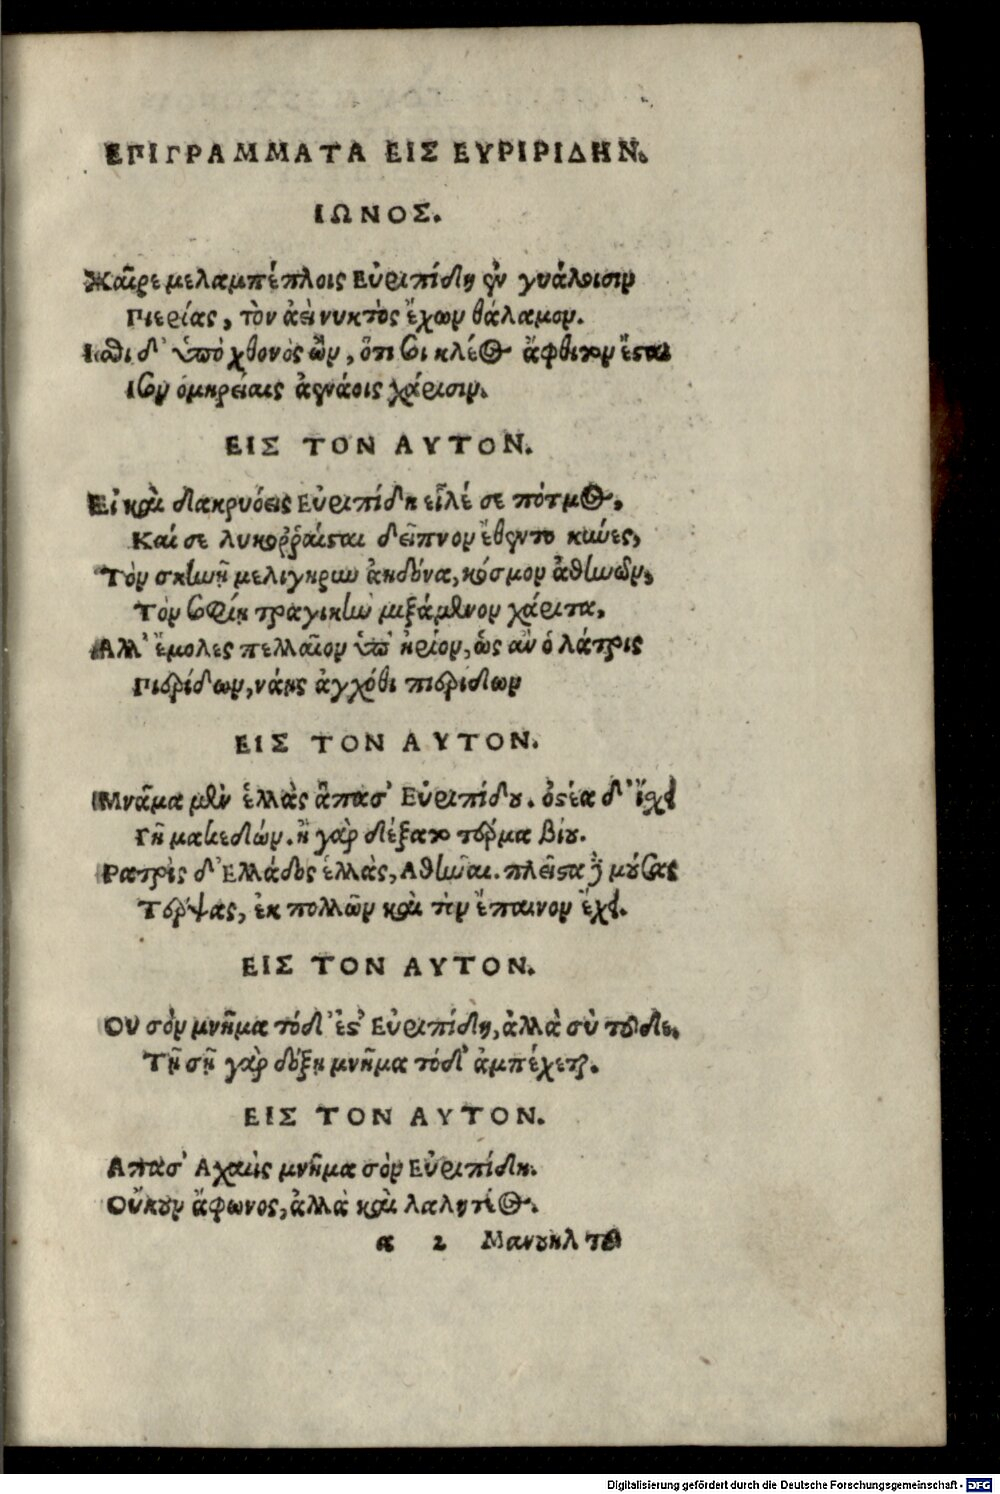 ΕΠΙΓΡΑΜΜΑΤΑ ΕΙΣ ΕΥΡΙΡΙΔΗΝ.
ΙΩΝΟΣ.
Χαῖρε μελαμπέπλοις Εὐριπίδη ἐν γυάλοισιν
Πιερίας, τὸν ἀεὶ νυκτὸς ἔχων θάλαμον.
Ἴσθι δ' ὑπὸ χθονὸς ὢν, ὅτι σοι κλέος ἄφθιτον ἔσται
ἶσον ὁμηρείαις ἀενάοις χάρισιν.
ΕΙΣ ΤΟΝ ΑΥΤΟΝ.
Εἰ καὶ δακρυόεις Εὐριπίδη εἷλέ σε πότμος,
Καί σε λυκοῤῥαίσται δεῖπνον ἔθεντο κύνες,
Τὸν σκηνῆ μελίγηρυν ἀηδόνα, κόσμον ἀθηνῶν,
Τὸν σοφίη τραγικὴν μιξάμενον χάριτα,
Ἀλλ' ἔμολες πελλαῖον ὑπ' ἠρίον, ὡς ἂν ὁ λάτρις
Πιερίδων, νάης ἀγχόθι πιερίδων
ΕΙΣ ΤΟΝ ΑΥΤΟΝ.
Μνᾶμα μὲν ἑλλὰς ἅπασ' Εὐριπίδου. ὀστέα δ' ἴσχει
Γῆ μακεδών. ἣ γὰρ δέξατο τέρμα βίου.
Ρατρὶς δ' Ἑλλάδος ἑλλὰς, Ἀθῆναι. πλεῖστα δὲ μούσας
Τέρψας, ἐκ πολλῶν καὶ τὴν ἔπαινον ἔχει.
ΕΙΣ ΤΟΝ ΑΥΤΟΝ.
Οὐ σὸν μνῆμα τόδ' ἔστ' Εὐριπίδη, ἀλλὰ σὺ τοῦδε.
Τῇ σῇ γὰρ δόξῃ μνῆμα τόδ' ἀμπέχεται.
ΕΙΣ ΤΟΝ ΑΥΤΟΝ.
Ἅπασ' Ἀχαιὶς μνῆμα σὸν Εὐριπίδη.
Οὔκουν ἄφωνος, ἀλλὰ καὶ λαλητέος.
α 2 Μανουὴλ τοῦ
Digitalisierung gefördert durch die Deutsche Forschungsgemeinschaft - DFG